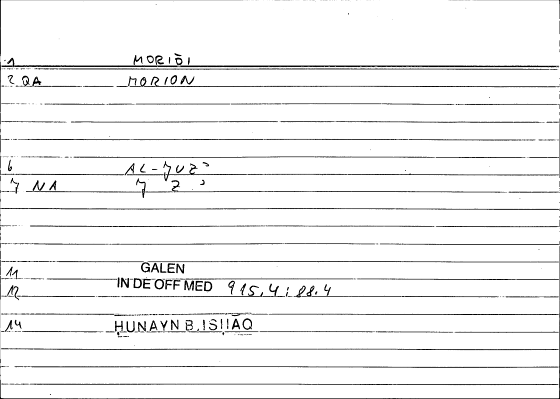 1 MORIŌI
2 QA MORION
6 AL-JUZʾ
7 NA J Z ʾ
11 GALEN
12 IN DE OFF MED 915,4 : 88.4
14 ḤUNAYN B. ISḤĀQ